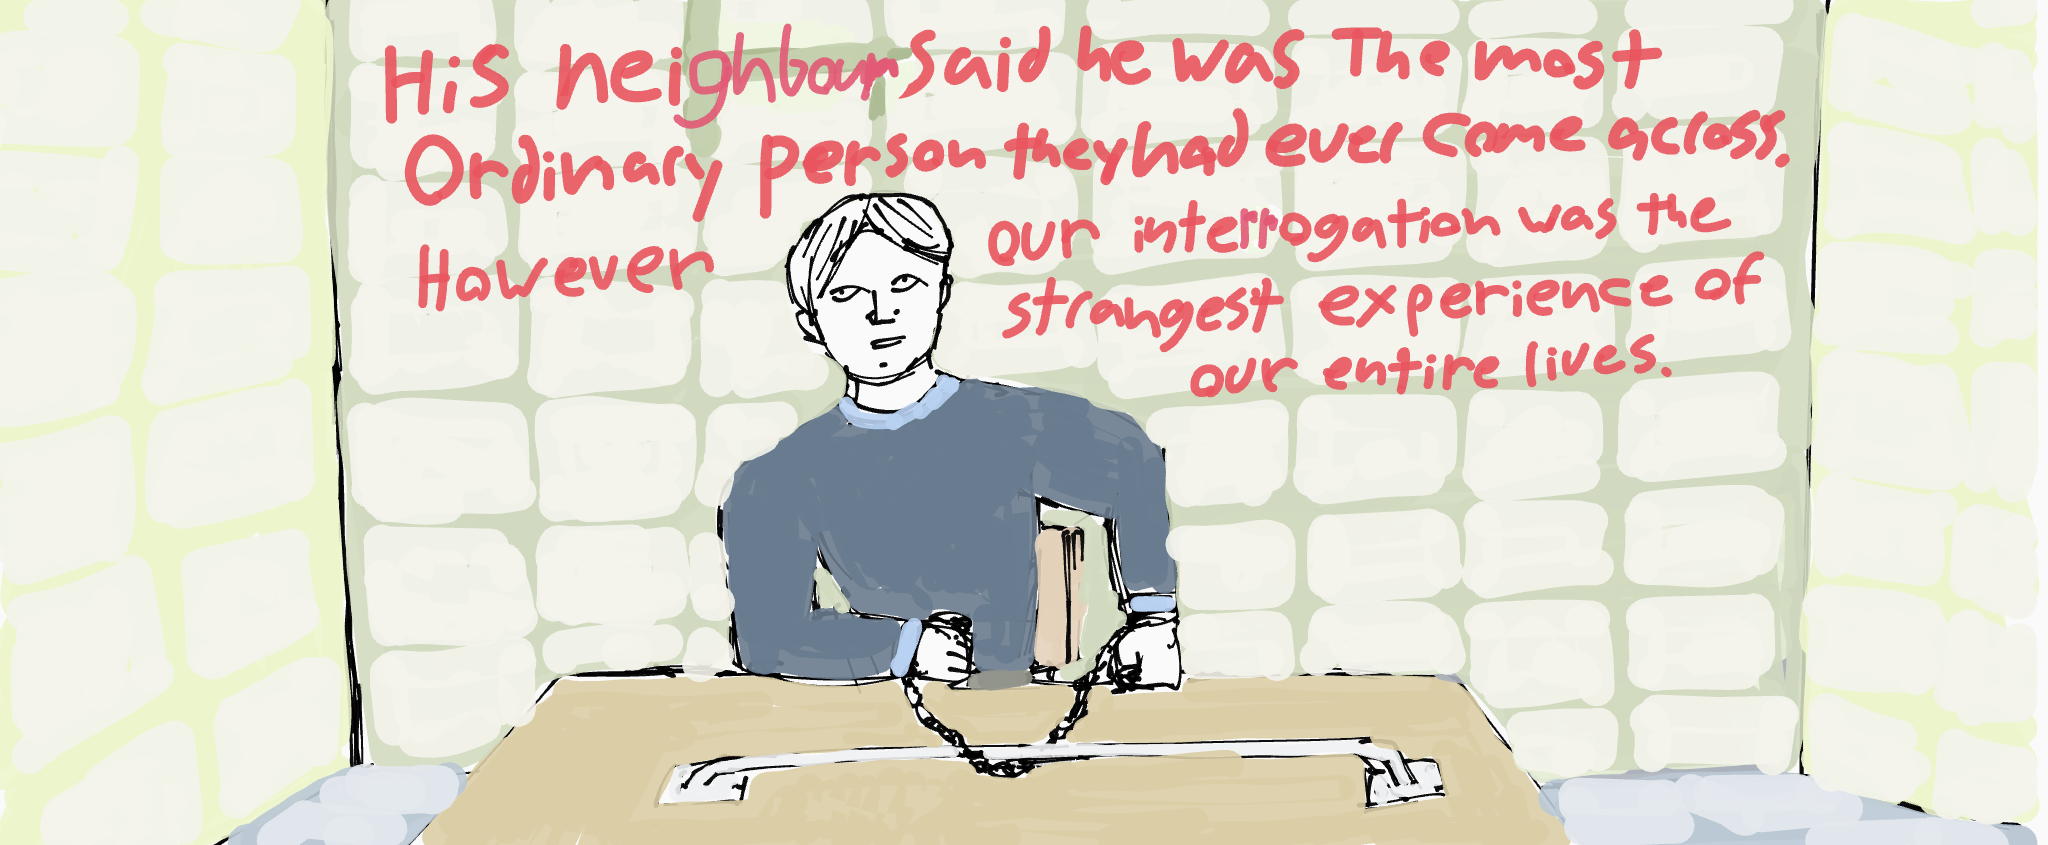 His neighbour said he was The most
Ordinary person they had ever come across.
However our interrogation was the
strangest experience of
our entire lives.